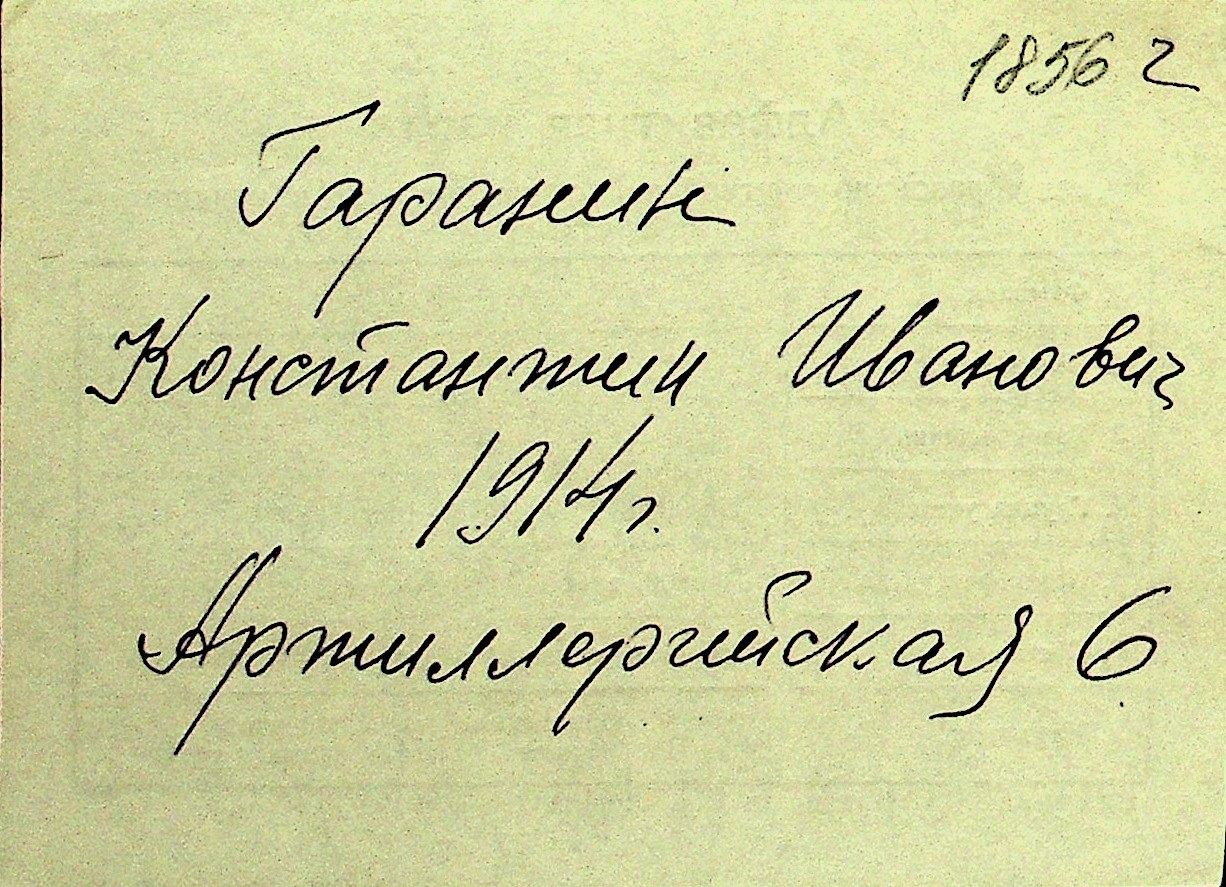 1856 г
Гаранин
Константин Иванович
1914г.
Артиллерийская 6